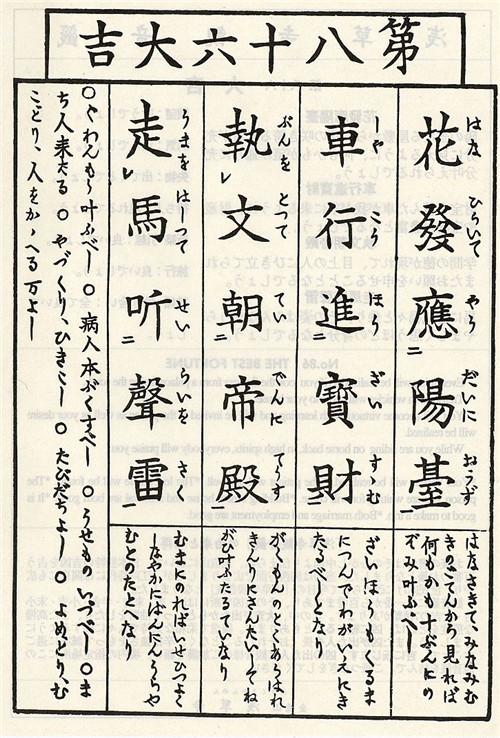 第八十六大吉
花發應陽臺
はな ひらいて やう だいに おうず
はなさきてみなみむ
きのごてんから見れば
何もかも十ぶんにの
ぞみ叶ふべし
車行進寶財
しや かう ほう ざ すゝむ
ざいほうもくるま
につんでわがいえにき
たるべしとなり
執文朝帝殿
ぶんを とつて てい でんに てうす
がくもんのとくあらはれ
きんりにさんだいしそね
がひ叶ふたるていなり
走馬听聲雷
うまを はしつて せい らいを
むまにのればいせひつよく
しなやかにばんにん
むとのたとへなり
○ぐわんもう叶ふべし ○病人本ぶくすべし ○うせものいづべし ○ま
ち人来たる ○やづくり、ひきこし ○たびだちよし ○よめどり、む
ことり、人をかゝへる万よし